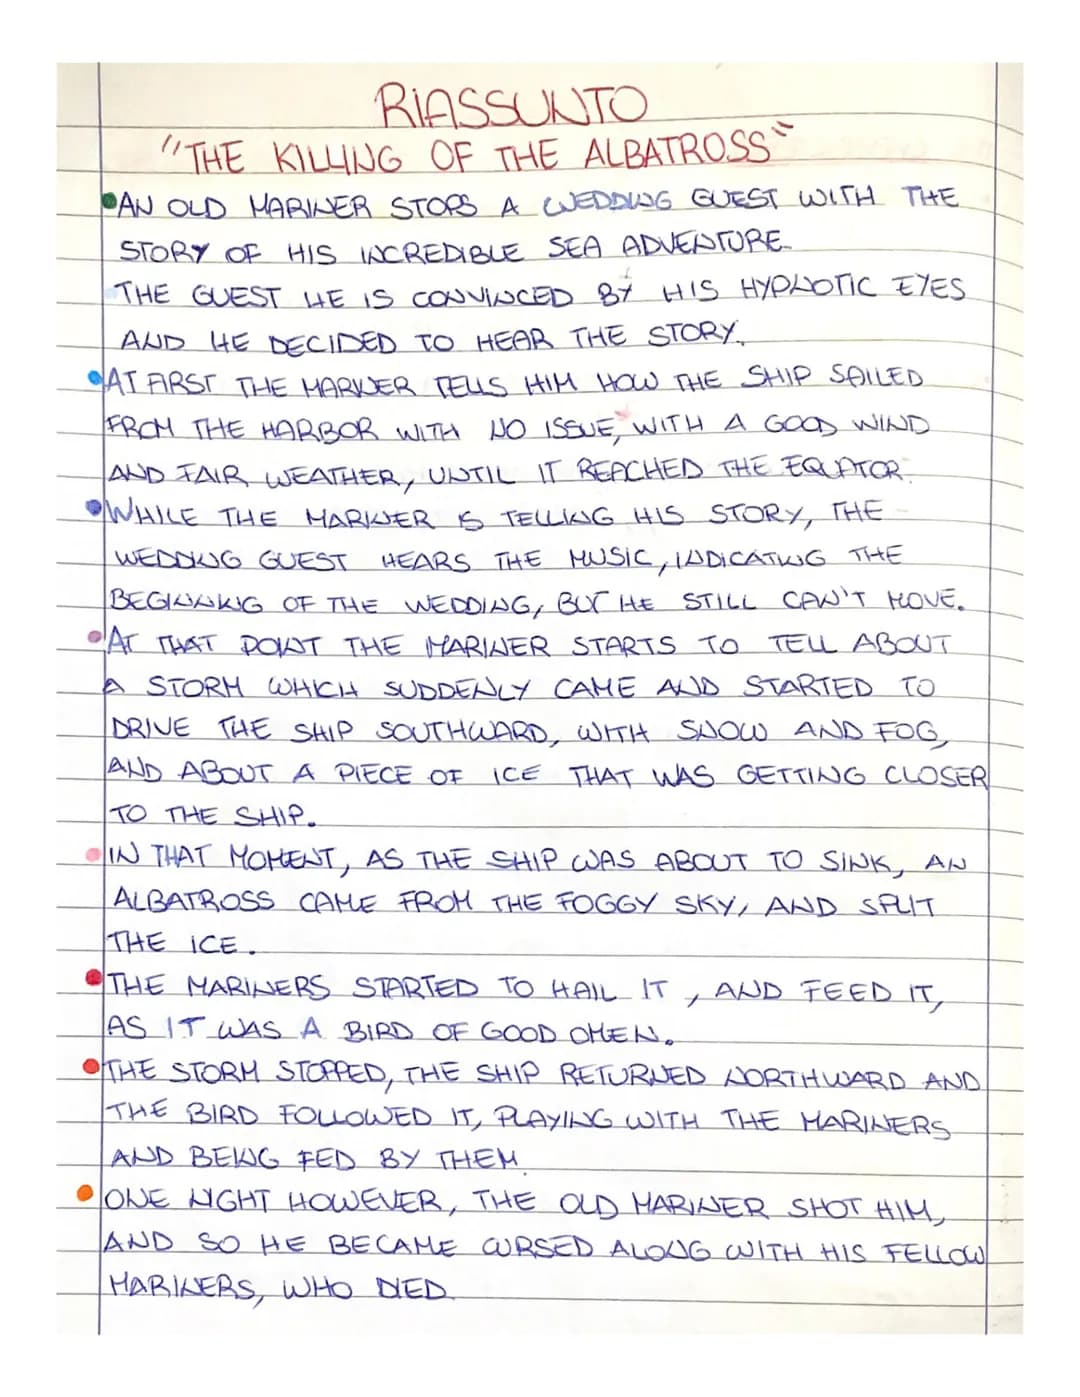 RIASSUNTO
"THE KILLING OF THE ALBATROSS"
AN OLD MARINER STOPS A WEDDING GUEST WITH THE
STORY OF HIS INCREDIBLE SEA ADVENTURE.
THE GUEST HE IS CONVINCED BY HIS HYPNOTIC EYES
AND HE DECIDED TO HEAR THE STORY.
AT FIRST THE MARINER TELLS HIM HOW THE SHIP SAILED
FROM THE HARBOR WITH NO ISSUE, WITH A GOOD WIND
AND FAIR WEATHER, UNTIL IT REACHED THE EQUATOR.
WHILE THE MARINER IS TELLING HIS STORY, THE
WEDDING GUEST HEARS THE MUSIC, INDICATING THE
BEGINNING OF THE WEDDING, BUT HE STILL CAN'T MOVE.
AT THAT POINT THE MARINER STARTS TO TELL ABOUT
A STORM WHICH SUDDENLY CAME AND STARTED TO
DRIVE THE SHIP SOUTHWARD, WITH SNOW AND FOG,
AND ABOUT A PIECE OF ICE THAT WAS GETTING CLOSER
TO THE SHIP.
IN THAT MOMENT, AS THE SHIP WAS ABOUT TO SINK, AN
ALBATROSS CAME FROM THE FOGGY SKY, AND SPLIT
THE ICE.
THE MARINERS STARTED TO HAIL IT, AND FEED IT,
AS IT WAS A BIRD OF GOOD OMEN.
THE STORM STOPPED, THE SHIP RETURNED NORTHWARD AND
THE BIRD FOLLOWED IT, PLAYING WITH THE MARINERS
AND BEING FED BY THEM.
ONE NIGHT HOWEVER, THE OLD MARINER SHOT HIM,
AND SO HE BECAME CURSED ALONG WITH HIS FELLOW
MARINERS, WHO DIED.